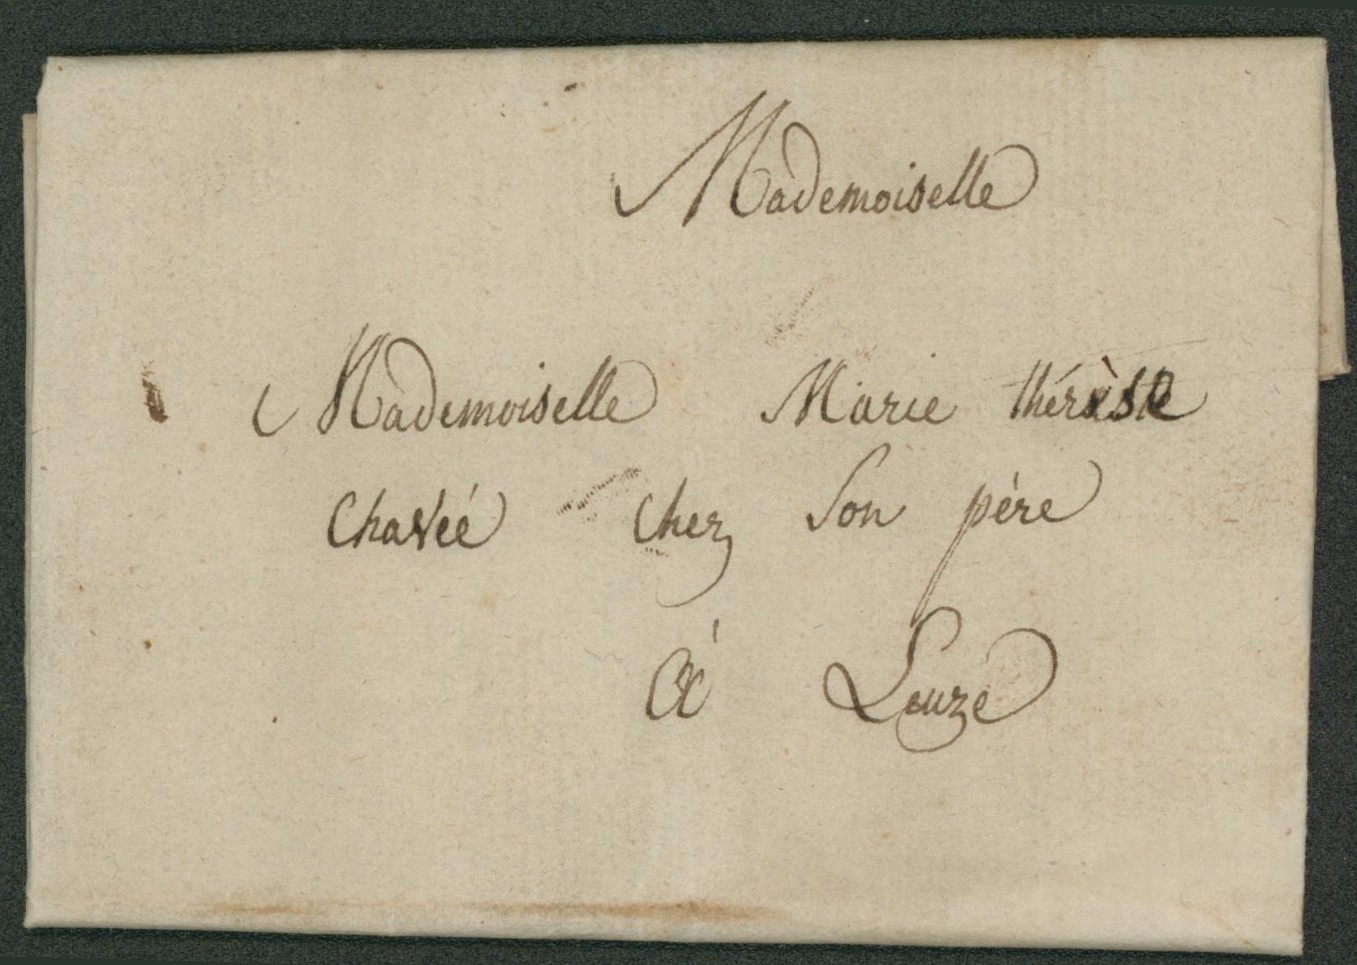 Mademoiselle
Mademoiselle Marie thérèse
Chaveé Chez Son père
à Leuze